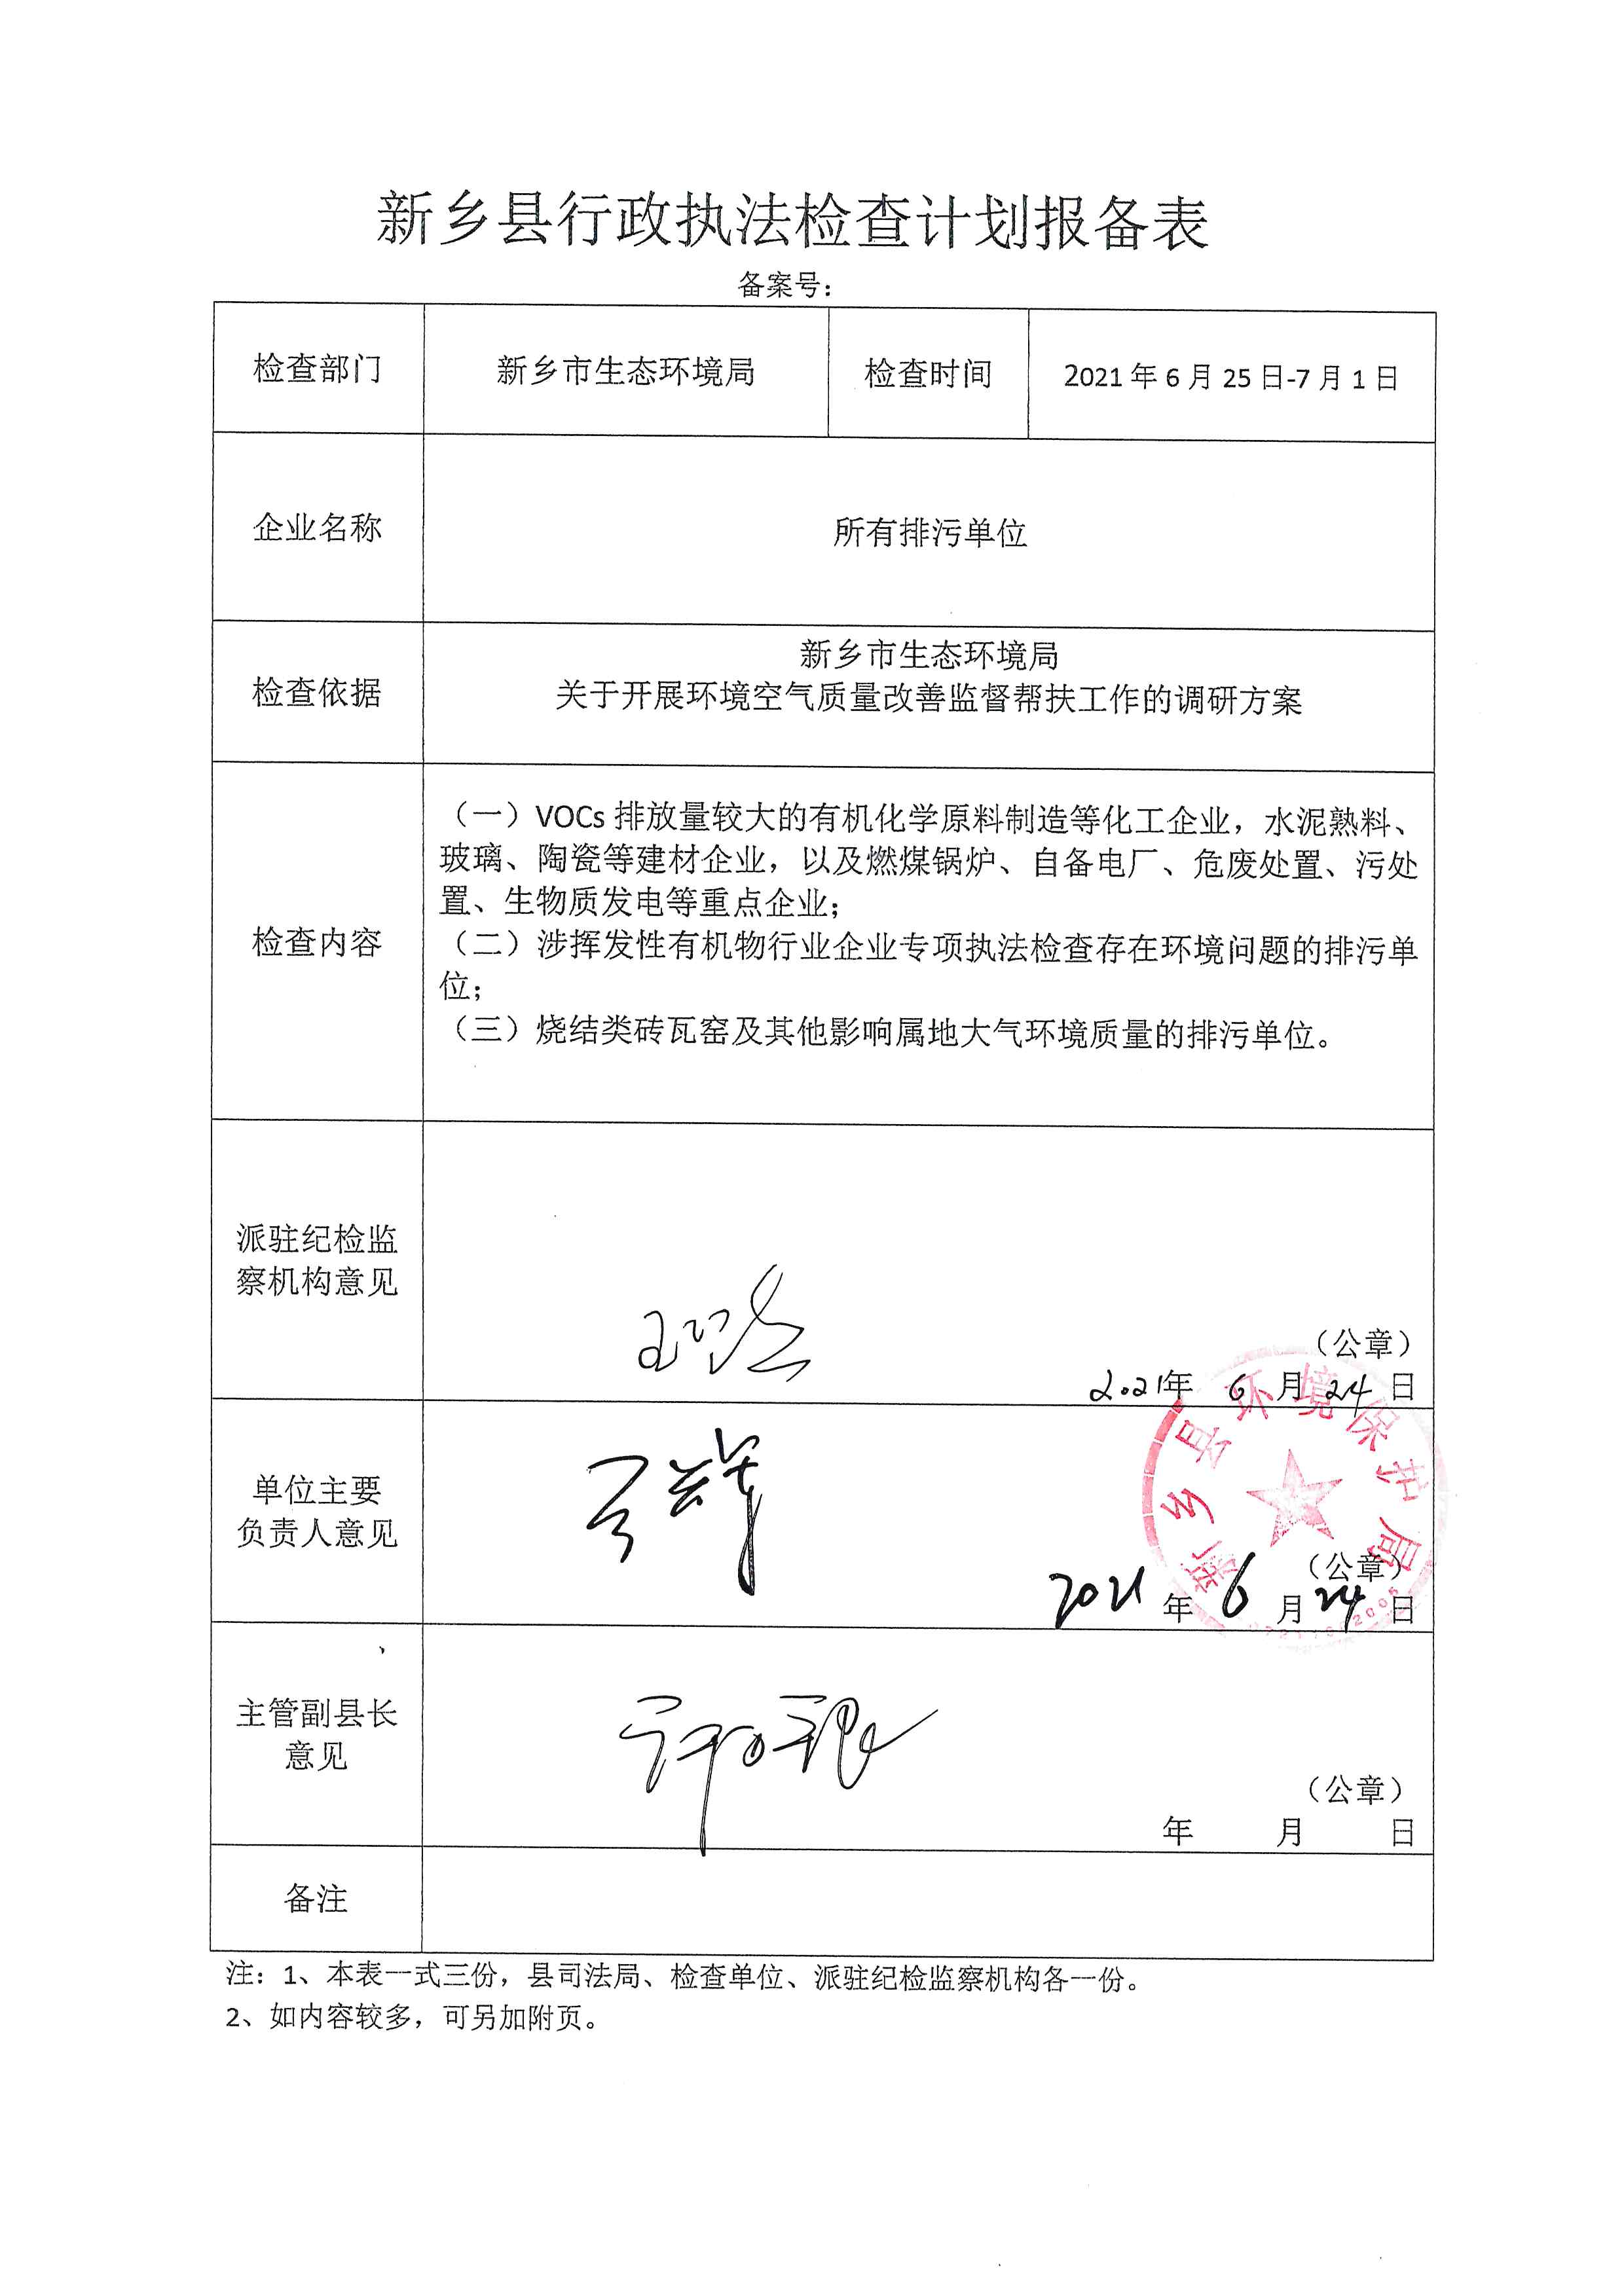 新乡县行政执法检查计划报备表
备案号：
检查部门 新乡市生态环境局 检查时间 2021年6月25日-7月1日
企业名称 所有排污单位
检查依据
新乡市生态环境局
关于开展环境空气质量改善监督帮扶工作的调研方案
检查内容
（一）VOCs 排放量较大的有机化学原料制造等化工企业，水泥熟料、
玻璃、陶瓷等建材企业，以及燃煤锅炉、自备电厂、危废处置、污处
置、生物质发电等重点企业；
（二）涉挥发性有机物行业企业专项执法检查存在环境问题的排污单
位；
（三）烧结类砖瓦窑及其他影响属地大气环境质量的排污单位。
派驻纪检监
察机构意见
（公章）
2021年 6 月 24 日
单位主要
负责人意见
新乡县环境保护局
（公章）
2021 年 6 月 24 日
主管副县长
意见
（公章）
年 月 日
备注
注：1、本表一式三份，县司法局、检查单位、派驻纪检监察机构各一份。
2、如内容较多，可另加附页。